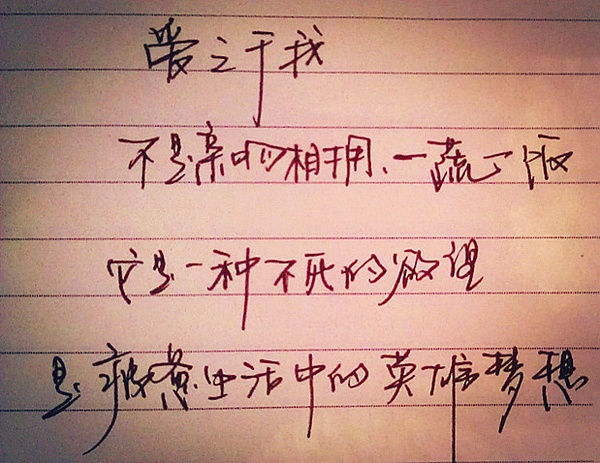 爱之于我
不是亲吻相拥、一蔬一饭
它是一种不死的欲望
是疲惫生活中的英雄梦想